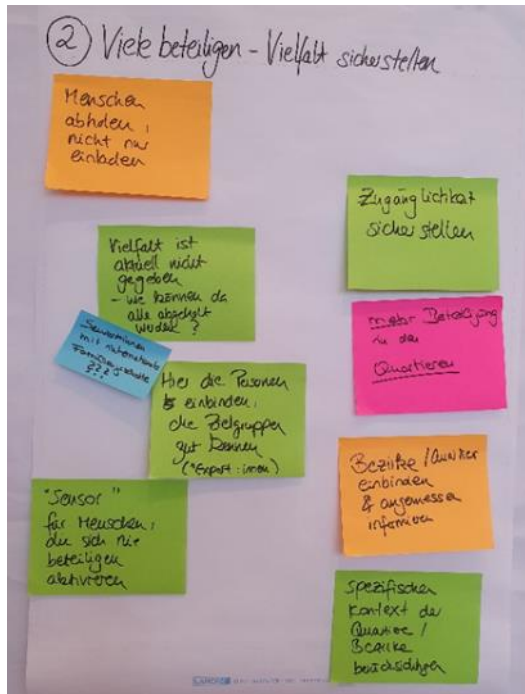 ② Viele beteiligen – Vielfalt sicherstellen
Menschen
abholen,
nicht nur
einladen
Vielfalt ist
aktuell nicht
gegeben
- wie können da
alle abgeholt
werden?
Seniorinnen
mit
???
Hier die Personen
einbinden,
die Zielgruppen
gut kennen
(*Expert:innen)
"Sensor"
für Menschen,
die sich nie
beteiligen
aktivieren
Zugänglichkeit
sicherstellen
mehr Beteiligung
in den
Quartieren
Bezirke / Quartier
einbinden
& angemessen
informieren
Spezifischen
Kontext der
Quartiere /
Bezirke
berücksichtigen